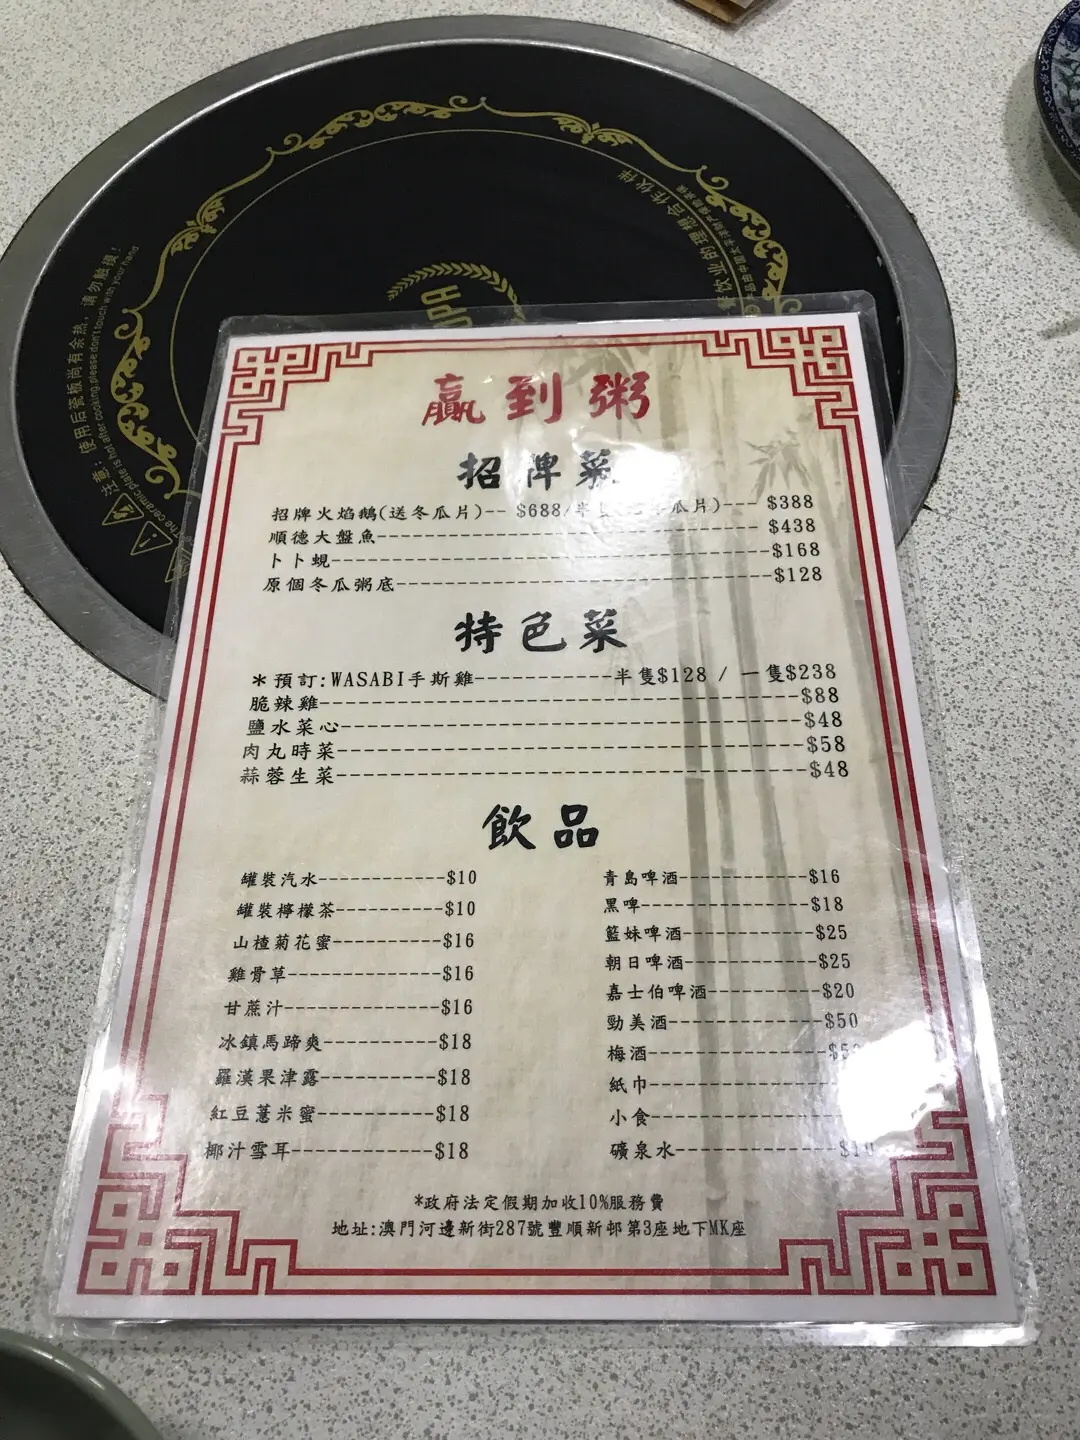 注意：使用后瓷板尚有余热，请勿触摸！
The ceramic plate is hot after cooking,please don't touch with your hand
餐饮业的理想合作伙伴
UPA
贏到粥
招牌菜
招牌火焰鵝(送冬瓜片)-- $688/半 瓜片)--- $388
順德大盤魚---$438
卜卜蜆---$168
原個冬瓜粥底---$128
特色菜
*預訂:WASABI手斯雞---半隻$128 / 一隻$238
脆辣雞---$88
鹽水菜心---$48
肉丸時菜---$58
蒜蓉生菜---$48
飲品
罐裝汽水---$10
罐裝檸檬茶---$10
山楂菊花蜜---$16
雞骨草---$16
甘蔗汁---$16
冰鎮馬蹄爽---$18
羅漢果津露---$18
紅豆薏米蜜---$18
椰汁雪耳---$18
青島啤酒---$16
黑啤---$18
籃妹啤酒---$25
朝日啤酒---$25
嘉士伯啤酒---$20
勁美酒---$50
梅酒---
紙巾---
小食---
礦泉水---$10
*政府法定假期加收10%服務費
地址:澳門河邊新街287號豐順新邨第3座地下MK座